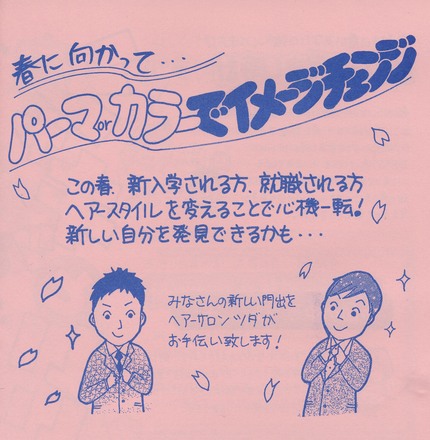 春に向かって・・・
パーマorカラーでイメージチェンジ
この春、新入学される方、就職される方
ヘアースタイルを変えることで心機一転!
新しい自分を発見できるかも・・・
みなさんの新しい門出を
ヘアーサロン ツダが
お手伝い致します!